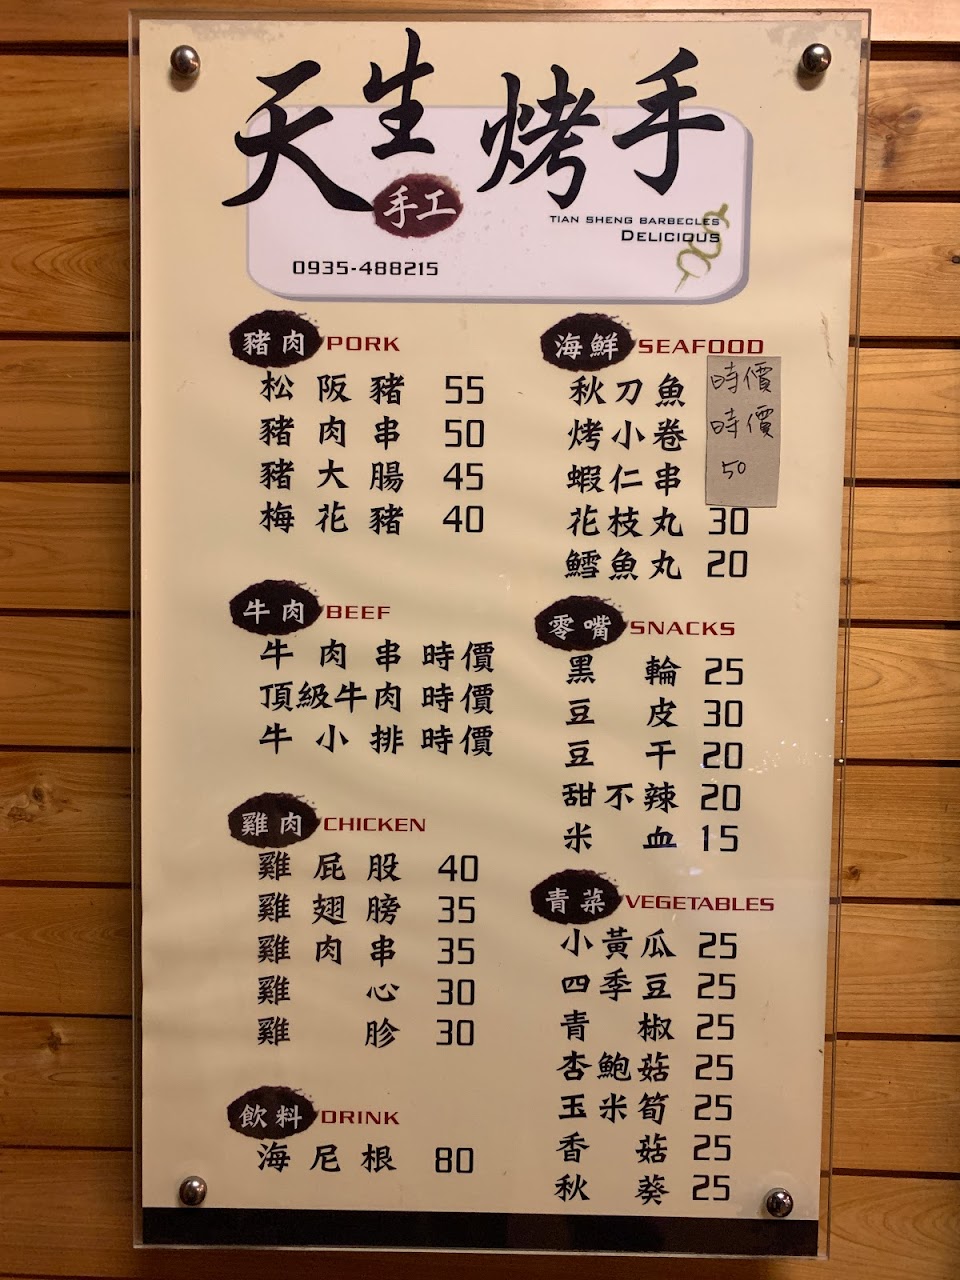 天生烤手
手工
TIAN SHENG BARBECLES
DELICIOUS
0935-488215
豬肉/PORK
松阪豬 55
豬肉串 50
豬大腸 45
梅花豬 40
牛肉/BEEF
牛肉串 時價
頂級牛肉 時價
牛小排 時價
雞肉/CHICKEN
雞屁股 40
雞翅膀 35
雞肉串 35
雞心 30
雞胗 30
飲料/DRINK
海尼根 80
海鮮/SEAFOOD
秋刀魚 時價
烤小卷 時價
蝦仁串 50
花枝丸 30
鱈魚丸 20
零嘴/SNACKS
黑輪 25
豆皮 30
豆干 20
甜不辣 20
米血 15
青菜/VEGETABLES
小黃瓜 25
四季豆 25
青椒 25
杏鮑菇 25
玉米筍 25
香菇 25
秋葵 25